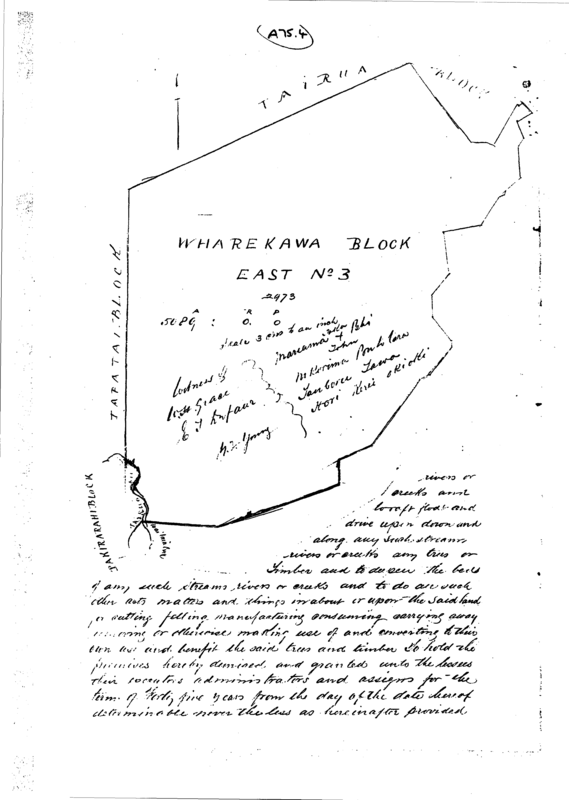 A75.4
TAIRUA BLOCK
WHAREKAWA BLOCK
EAST No 3
2973
A R P
5089 : 0. 0
Scale 3 ins to an inch
TAPATAI BLOCK
Witness
Grace
G. F. Young
Mareama
John
Hori
TAKIRARAHI BLOCK
rivers or
creeks and
to raft float and
drive up or down and
along any such streams
rivers or creeks any trees or
Timber and to deepen the beds
of any such streams rivers or creeks and to do all such
other acts matters and things in about or upon the said land
for cutting felling manufacturing consuming carrying away
removing or otherwise making use of and converting to their
own use and benefit the said trees and timber To hold the
premises hereby demised and granted unto the lessees
their executors administrators and assigns for the
term of Forty five years from the day of the date hereof
determinable never the less as hereinafter provided